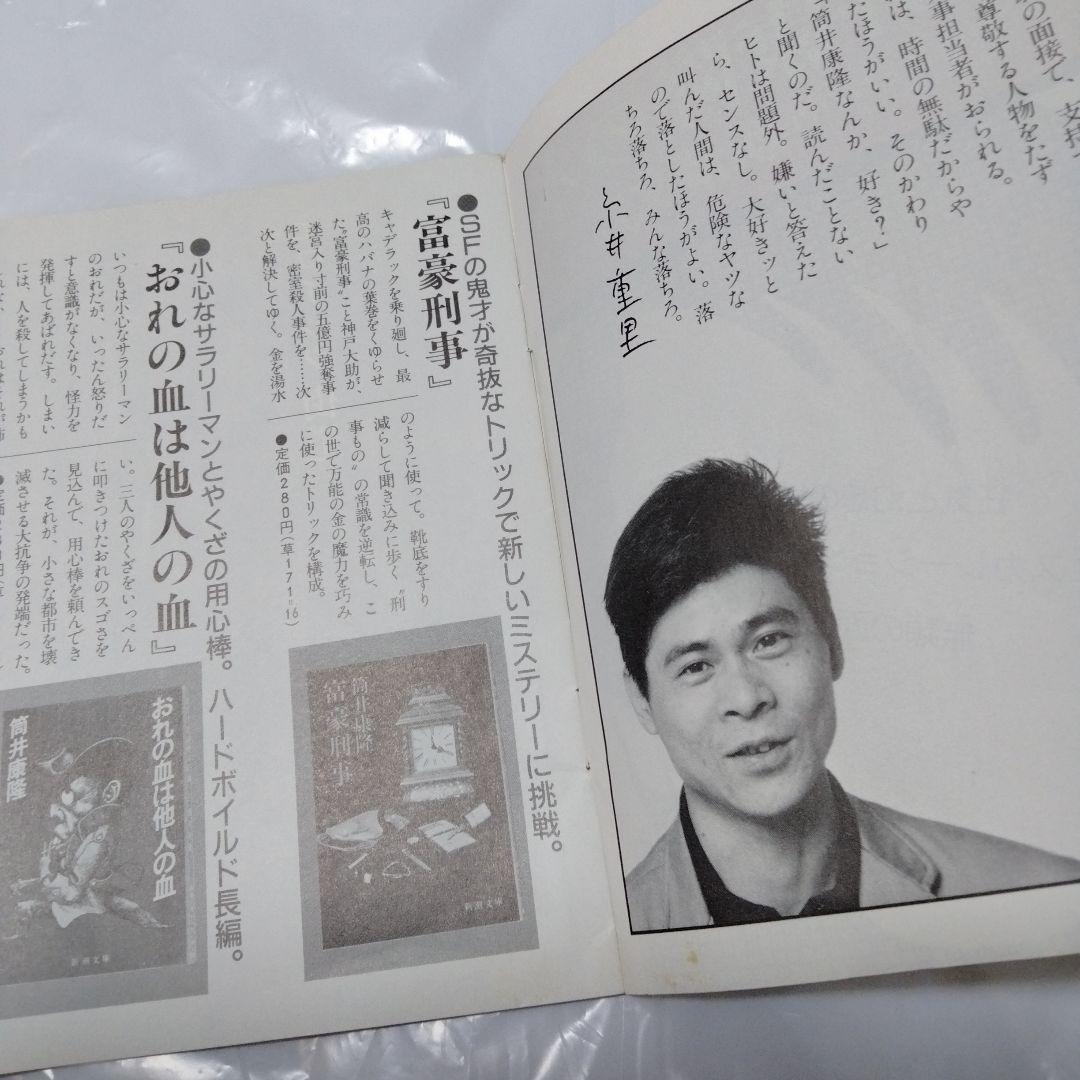 の面接で、支持
尊敬する人物をたず
事担当者がおられる。
は、時間の無駄だからや
たほうがいい。そのかわり
筒井康隆なんか、好き?」
と聞くのだ。読んだことない
ヒトは問題外。嫌いと答えた
ら、センスなし。大好きッと
叫んだ人間は、危険なヤツな
ので落としたほうがよい。落
ちろ落ちろ、みんな落ちろ。
糸井重里
●SFの鬼才が奇抜なトリックで新しいミステリーに挑戦。
『富豪刑事』
キャデラックを乗り廻し、最
高のハバナの葉巻をくゆらせ
た〝富豪刑事〟こと神戸大助が、
迷宮入り寸前の五億円強奪事
件を、密室殺人事件を……次
次と解決してゆく。金を湯水
のように使って。靴底をすり
減らして聞き込みに歩く〝刑
事もの〟の常識を逆転し、こ
の世で万能の金の魔力を巧み
に使ったトリックを構成。
●定価280円(草171=16)
筒井康隆
富豪刑事
新潮文庫
●小心なサラリーマンとやくざの用心棒。ハードボイルド長編。
『おれの血は他人の血』
いつもは小心なサラリーマン
のおれだが、いったん怒りだ
すと意識がなくなり、怪力を
発揮してあばれだす。しまい
には、人を殺してしまうかも
い。三人のやくざをいっぺん
に叩きつけたおれのスゴさを
見込んで、用心棒を頼んでき
た。それが、小さな都市を壊
滅させる大抗争の発端だった。
おれの血は他人の血
筒井康隆
新潮文庫